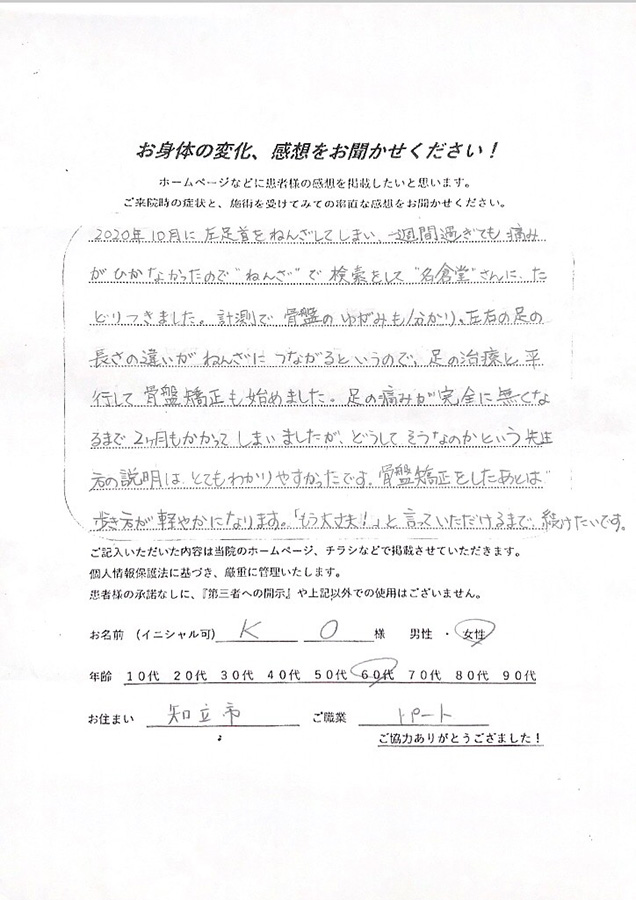 お身体の変化、感想をお聞かせください！
ホームページなどに患者様の感想を掲載したいと思います。
ご来院時の症状と、施術を受けてみての率直な感想をお聞かせください。
2020年10月に左足首をねんざしてしまい 一週間過ぎても痛み
がひかなかったので"ねんざ"で検索をして"名倉堂"さんに、た
どりつきました。計測で骨盤のゆがみも分かり、左右の足の
長さの違いがねんざにつながるというので、足の治療と平
行して骨盤矯正も始めました。足の痛みが完全に無くな
るまで2ヶ月もかかってしまいましたが、どうしてそうなのかという先生
方の説明は、とてもわかりやすかったです。骨盤矯正をしたあとは
歩き方が軽やかになります。「もう大丈夫！」と言っていただけるまで、続けたいです。
ご記入いただいた内容は当院のホームページ、チラシなどで掲載させていただきます。
個人情報保護法に基づき、厳重に管理いたします。
患者様の承諾なしに、『第三者への開示』や上記以外での使用はございません。
お名前 （イニシャル可） K O 様 男性 ・ 女性
年齢 10代 20代 30代 40代 50代 60代 70代 80代 90代
お住まい 知立市 ご職業 パート
ご協力ありがとうございました！